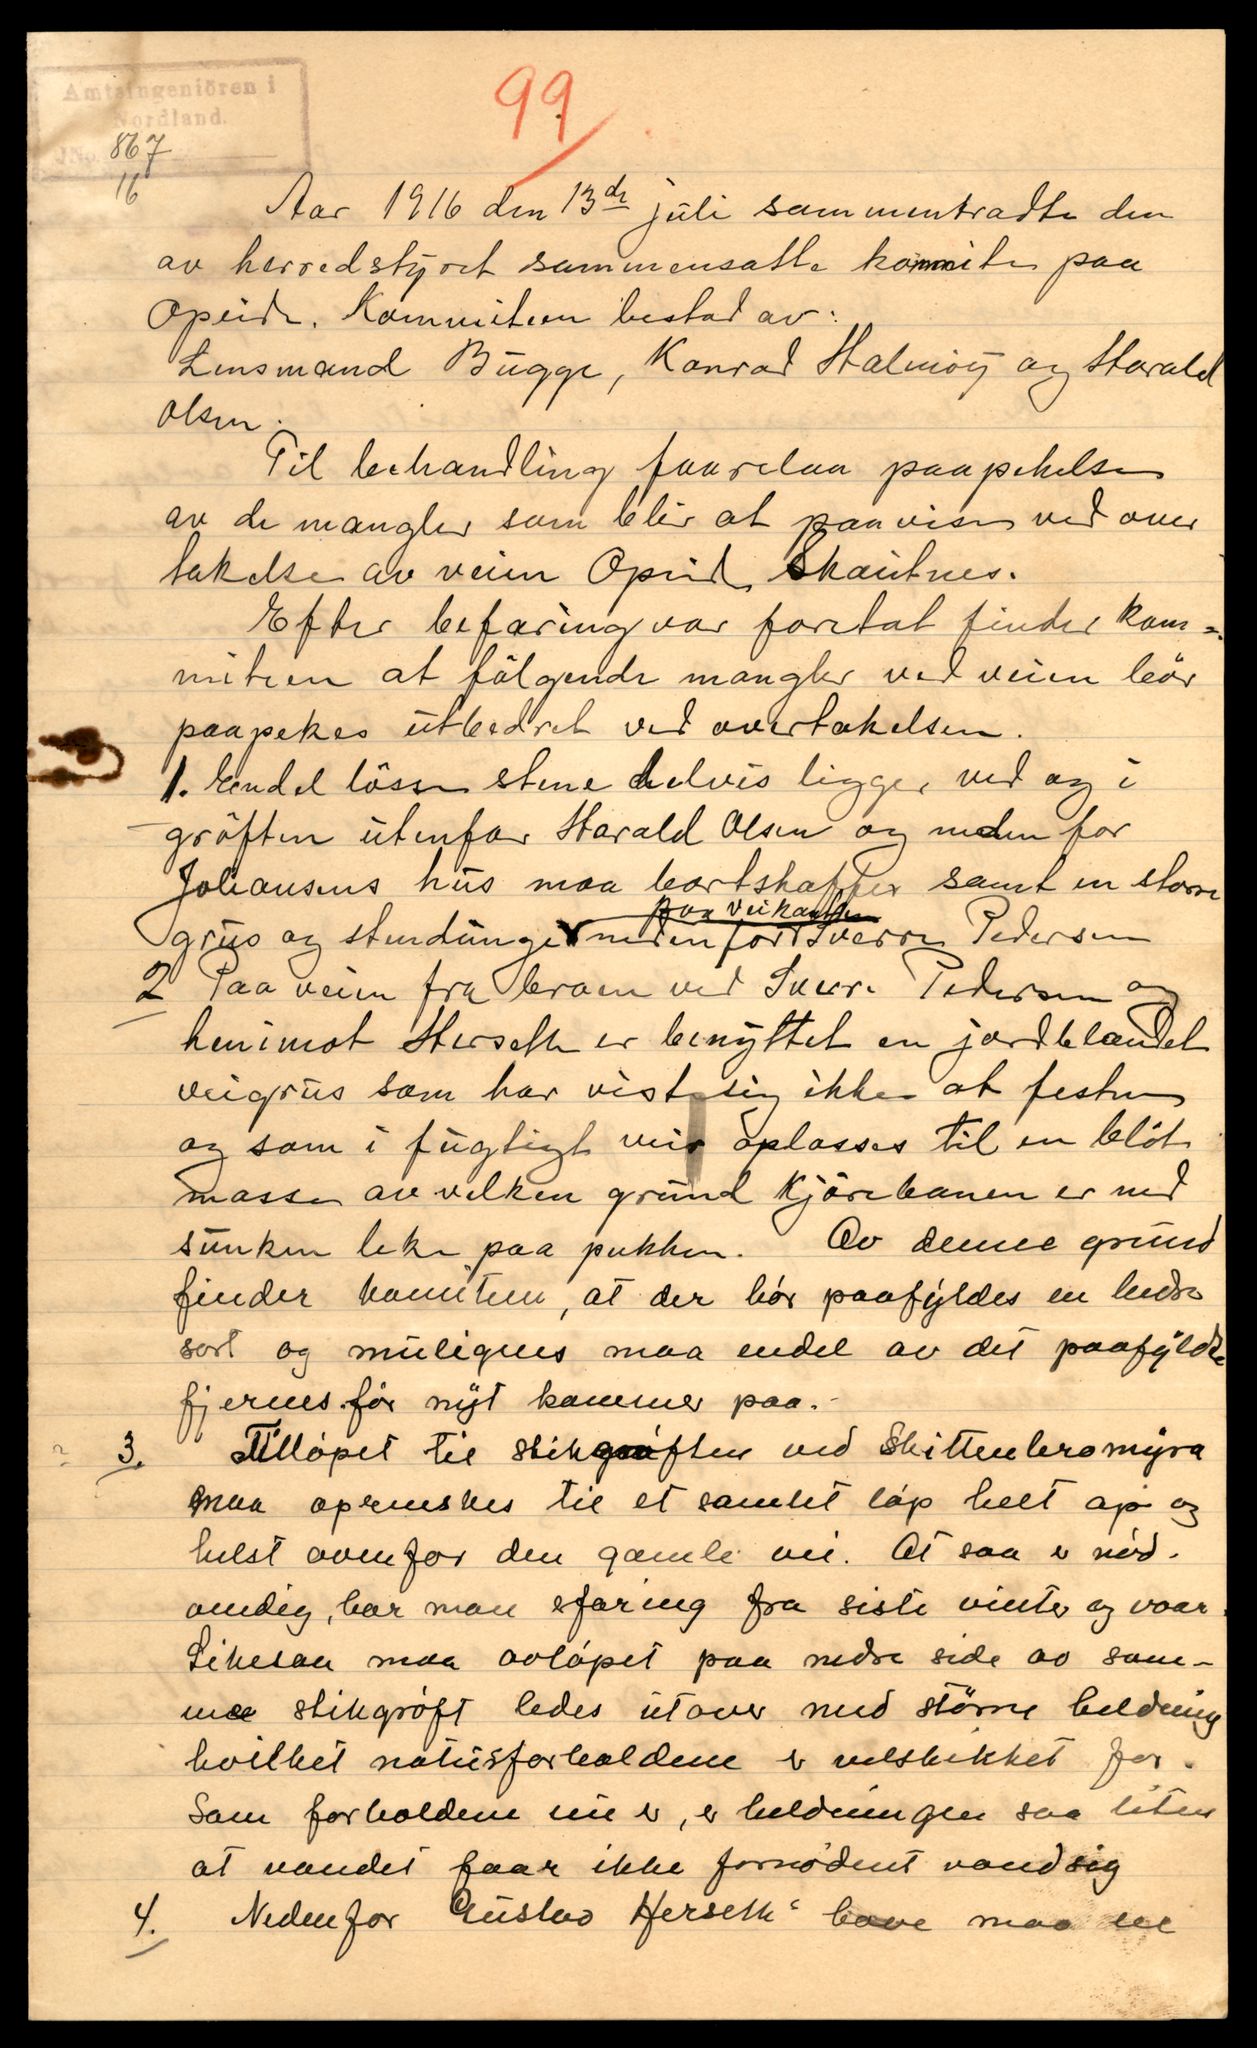 Amtsingeniören i
Nordland.
JNo. 867
16
99
Aar 1916 den 13de juli sammentradte den
av herredstyret sammensatte komite paa
Opeide. Kommiteen bestod av:
Lensmand Bugge, Konrad Halmöy og Harald
Olsen.
Til behandling foorelaa paapekelse
av de mangler som blir at paavise ved over
takelse av veien Opeide Skautnes.
Efter befaring var foretat finder kom-
miteen at følgende mangler ved veien bör
paapekes utbedret ved overtakelsen.
1. Endel lösse stene delvis ligger ved og i
gröften utenfor Harald Olsen og neden for
Johansens hus maa bortskaffes samt en större
paa veikanten
grus og stendunge nedenfor Sverre Pedersen
2 Paa veien fra broen ved Sverre Pedersen og
henimot Herseth er benyttet en jordblandet
veigrus som har vist sig ikke at festne
og som i fugtigt veir oplosses til en blöt
masse av velken grund kjörebanen er ned
sunken like paa pukken. Av denne grund
finder komiteen, at der bör paafyldes en bedre
sort og muligens maa endel av det paafyldte
fjernes för nyt kommer paa.-
3. Tillöpet til stikgröften ved Skittenbromyra
maa oprenskes til et samlet löp helt op og
helst ovenfor den gamle vei. At saa er nöd-
vendig, har man erfaring fra siste vinter og vaar.
Likesaa maa avlöpet paa nedre side av sam-
me stikgröft ledes utover med större heldning
hvilket naturforholdene er velskikket for.
Som forholdene nu er, er heldningen saa liten
at vandet faar ikke fornödent vandsig
4. Nedenfor Gustav Herseth's have maa en